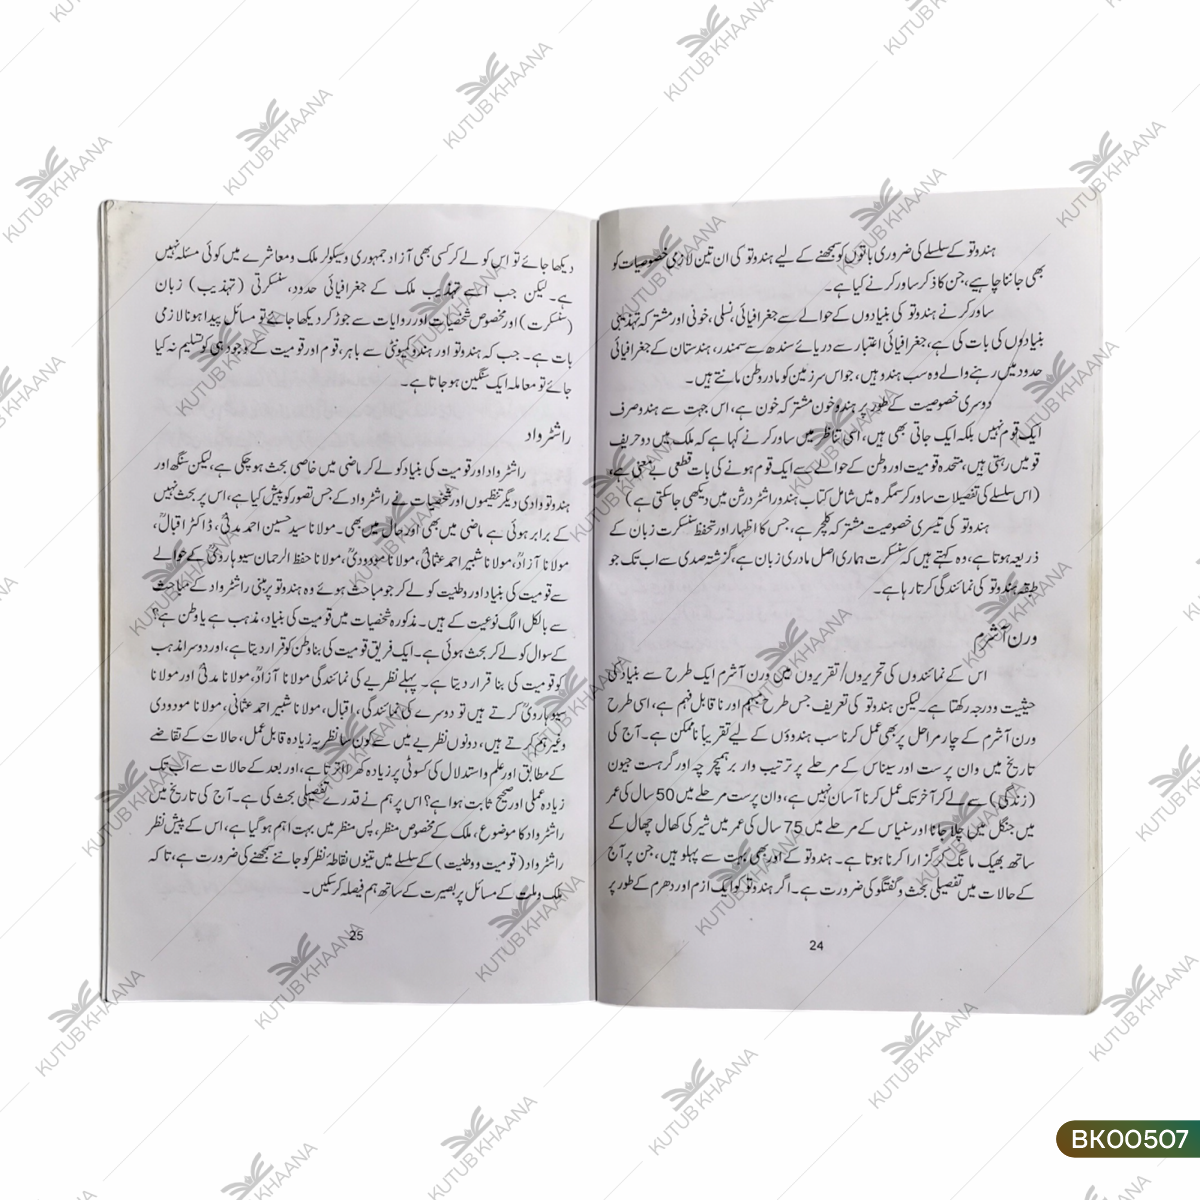 ہندوتو کے سلسلے کی ضروری باتوں کو سمجھنے کے لیے ہندوتو کی ان تین لازمی خصوصیات کو
بھی جاننا چاہیے، جن کا ذکر ساورکر نے کیا ہے۔
ساورکر نے ہندوتو کی بنیادوں کے حوالے سے جغرافیائی، نسلی، خونی اور مشترکہ تہذیبی
بنیادوں کی بات کی ہے، جغرافیائی اعتبار سے دریائے سندھ سے سمندر، ہندستان کے جغرافیائی
حدود میں رہنے والے وہ سب ہندو ہیں، جو اس سرزمین کو مادر وطن مانتے ہیں۔
دوسری خصوصیت کے طور پر ہندو خون مشترکہ خون ہے، اس جہت سے ہندو صرف
ایک قوم نہیں بلکہ ایک جاتی بھی ہیں، اسی تناظر میں ساورکر نے کہا ہے کہ ملک میں دو حریف
قومیں رہتی ہیں، متحدہ قومیت اور وطن کے حوالے سے ایک قوم ہونے کی بات قطعی بے معنی ہے،
(اس سلسلے کی تفصیلات ساورکر سمگرہ میں شامل کتاب ہندو راشٹر درشن میں دیکھی جاسکتی ہے)
ہندوتو کی تیسری خصوصیت مشترکہ کلچر ہے، جس کا اظہار اور تحفظ سنسکرت زبان کے
ذریعہ ہوتا ہے، وہ کہتے ہیں کہ سنسکرت ہماری اصل مادری زبان ہے، گزشتہ صدی سے اب تک جو
طبقہ ہندوتو کی نمائندگی کرتا رہا ہے۔
ورن آشرم
اس کے نمائندوں کی تحریروں/تقریروں میں ورن آشرم ایک طرح سے بنیاد کی
حیثیت و درجہ رکھتا ہے۔ لیکن ہندوتو کی تعریف جس طرح مبہم اور ناقابل فہم ہے، اسی طرح
ورن آشرم کے چار مراحل پر بھی عمل کرنا سب ہندوؤں کے لیے تقریباً ناممکن ہے۔ آج کی
تاریخ میں وان پرست اور سیناس کے مرحلے پر ترتیب وار برہمچریہ اور گرہست جیون
(زندگی) سے لے کر آخر تک عمل کرنا آسان نہیں ہے، وان پرست مرحلے میں 50 سال کی عمر
میں جنگل میں چلا جانا اور سنیاس کے مرحلے میں 75 سال کی عمر میں شیر کی کھال چھال کے
ساتھ بھیک مانگ کر گزارا کرنا ہوتا ہے۔ ہندوتو کے اور بھی بہت سے پہلو ہیں، جن پر آج
کے حالات میں تفصیلی بحث و گفتگو کی ضرورت ہے۔ اگر ہندوتو کو ایک ازم اور دھرم کے طور پر
24
دیکھا جائے تو اس کو لے کر کسی بھی آزاد جمہوری و سیکولر ملک و معاشرے میں کوئی مسئلہ نہیں
ہے۔ لیکن جب اسے تہذیب ملک کے جغرافیائی حدود، سنسکرتی (تہذیب) زبان
(سنسکرت) اور مخصوص شخصیات اور روایات سے جوڑ کر دیکھا جائے تو مسائل پیدا ہونا لازمی
بات ہے۔ جب کہ ہندوتو اور ہندو کمیونٹی سے باہر، قوم اور قومیت کے وجود ہی کو تسلیم نہ کیا
جائے تو معاملہ ایک سنگین ہو جاتا ہے۔
راشٹرواد
راشٹرواد اور قومیت کی بنیاد کو لے کر ماضی میں خاصی بحث ہو چکی ہے، لیکن سنگھ اور
ہندوتو وادی دیگر تنظیموں اور شخصیات نے راشٹرواد کے جس تصور کو پیش کیا ہے، اس پر بحث نہیں
کے برابر ہوئی ہے ماضی میں بھی اور حال میں بھی۔ مولانا سید حسین احمد مدنیؒ، ڈاکٹر اقبالؒ،
مولانا آزادؒ، مولانا شبیر احمد عثمانیؒ، مولانا مودودیؒ، مولانا حفظ الرحمان سیوہارویؒ کے حوالے
سے قومیت کی بنیاد اور وطنیت کو لے کر جو مباحث ہوئے وہ ہندوتو پر مبنی راشٹرواد کے مباحث
سے بالکل الگ نوعیت کے ہیں۔ مذکورہ شخصیات میں قومیت کی بنیاد، مذہب ہے یا وطن ہے؟
کے سوال کو لے کر بحث ہوئی ہے۔ ایک فریق قومیت کی بنا وطن کو قرار دیتا ہے، اور دوسرا مذہب
کو قومیت کی بنا قرار دیتا ہے۔ پہلے نظریے کی نمائندگی مولانا آزادؒ، مولانا مدنیؒ اور مولانا
سیوہارویؒ کرتے ہیں تو دوسرے کی نمائندگی، اقبال، مولانا شبیر احمد عثمانی، مولانا مودودی
وغیرہم کرتے ہیں، دونوں نظریے میں سے کون سا نظریہ زیادہ قابل عمل، حالات کے تقاضے
کے مطابق اور علم و استدلال کی کسوٹی پر زیادہ کھرا اترتا ہے، اور بعد کے حالات سے اب تک
زیادہ عملی اور صحیح ثابت ہوا ہے؟ اس پر ہم نے قدرے تفصیلی بحث کی ہے۔ آج کی تاریخ میں
راشٹرواد کا موضوع، ملک کے مخصوص منظر، پس منظر میں بہت اہم ہو گیا ہے، اس کے پیش نظر
راشٹرواد (قومیت و وطنیت) کے سلسلے میں تینوں نقاطۂ نظر کو جاننے سمجھنے کی ضرورت ہے، تاکہ
ملک و ملت کے مسائل پر بصیرت کے ساتھ ہم فیصلہ کر سکیں۔
25
KUTUB KHAANA
BK00507